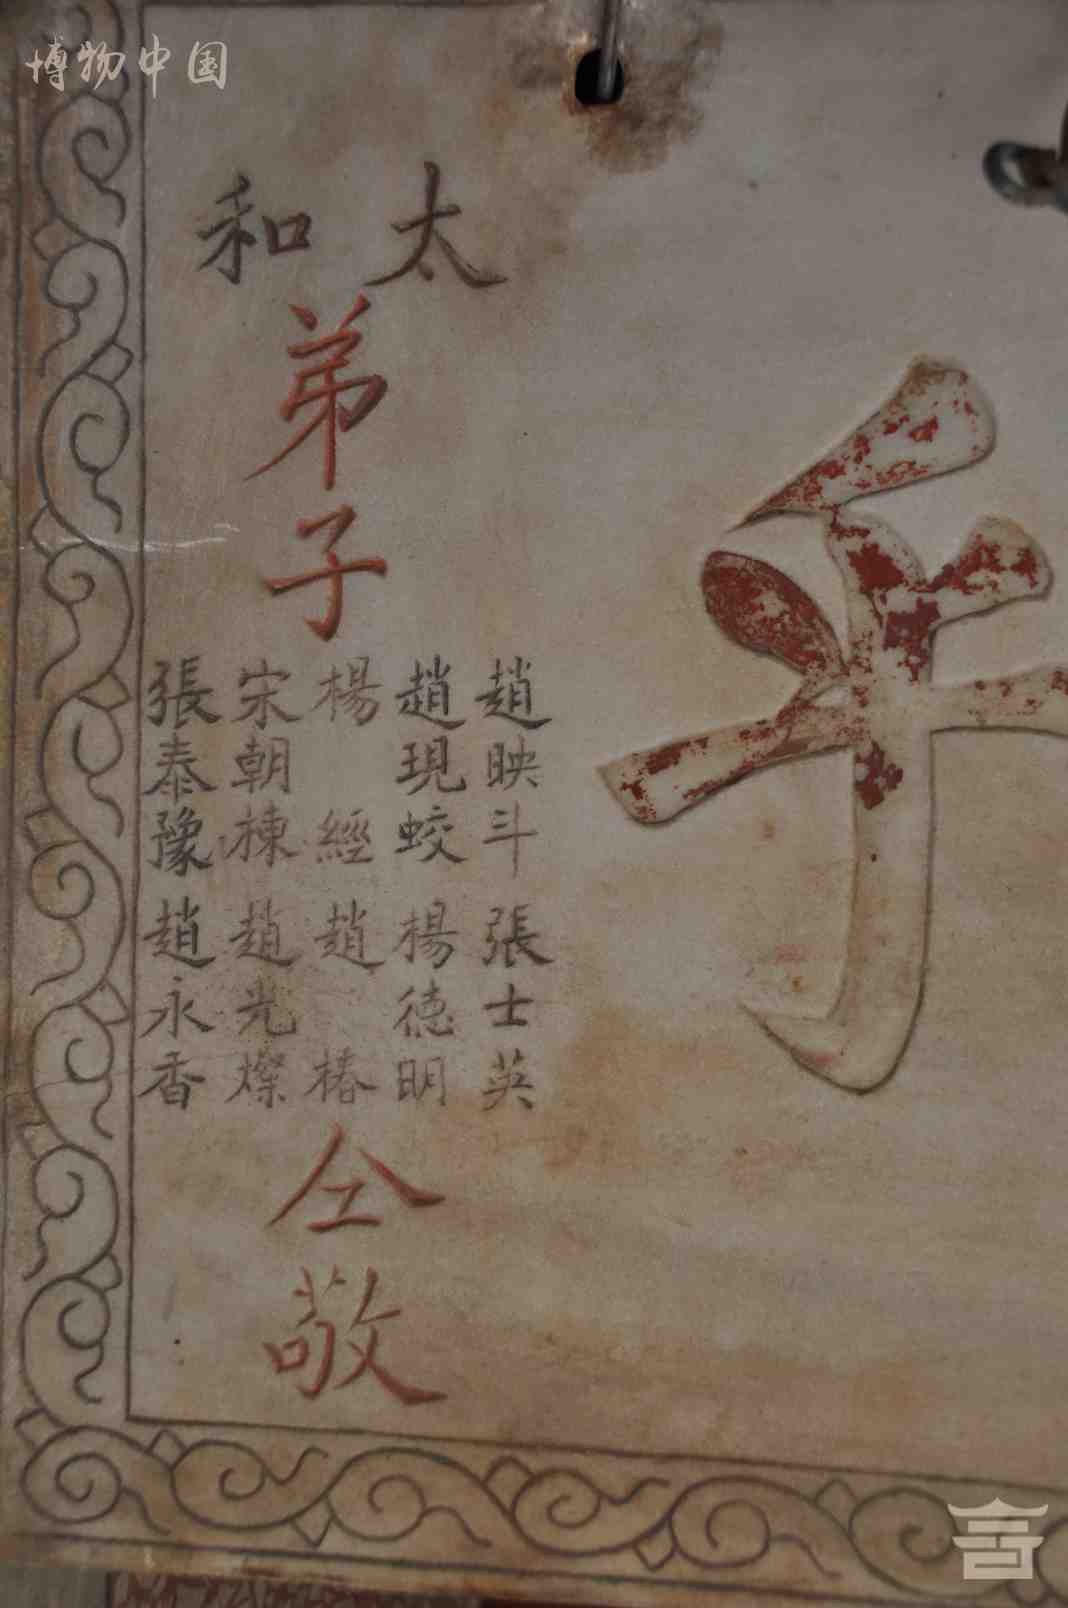 博物中国
乎
太和
弟子
趙映斗 張士英
趙現蛟 楊德明
楊經 趙椿
宋朝棟 趙光燦
張泰豫 趙永香
仝敬